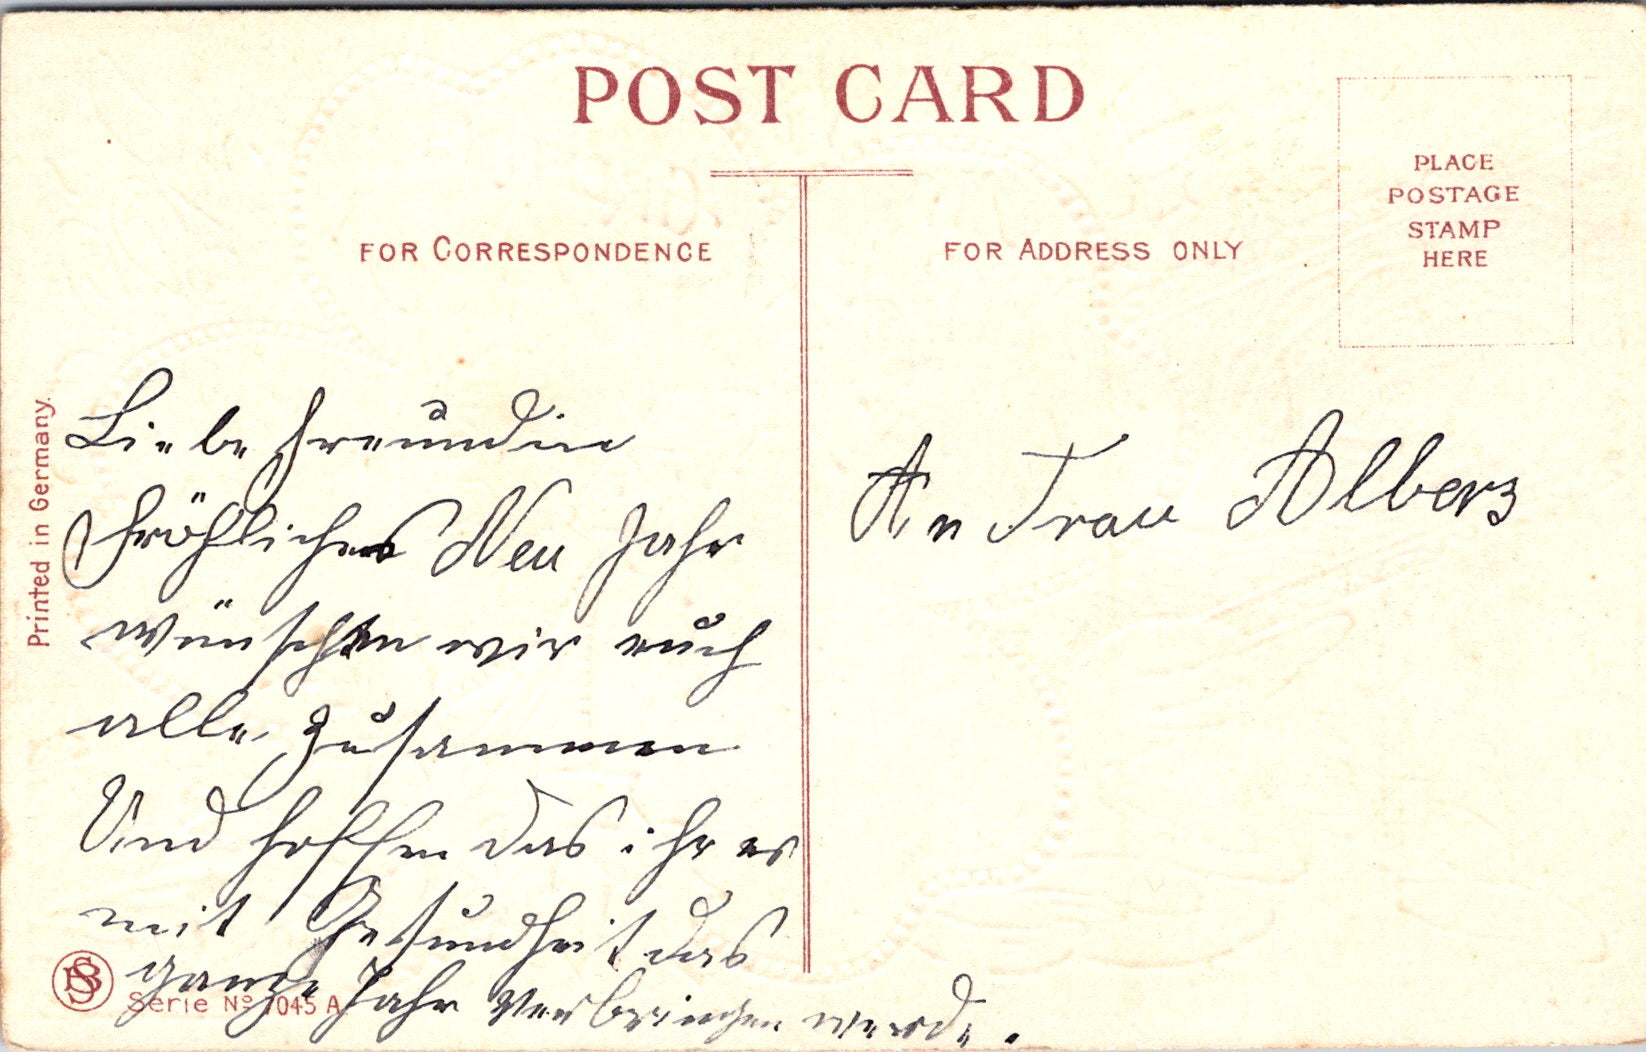 POST CARD
FOR CORRESPONDENCE
FOR ADDRESS ONLY
PLACE
POSTAGE
STAMP
HERE
Printed in Germany.
Liebe Freundin
fröhliches Neu Jahr
wünschen wir euch
alle zusammen
Und hoffen das ihr es
mit Gesundheit das
ganze Jahr verbringen werde.
An Frau Albers
Serie No 1045 A